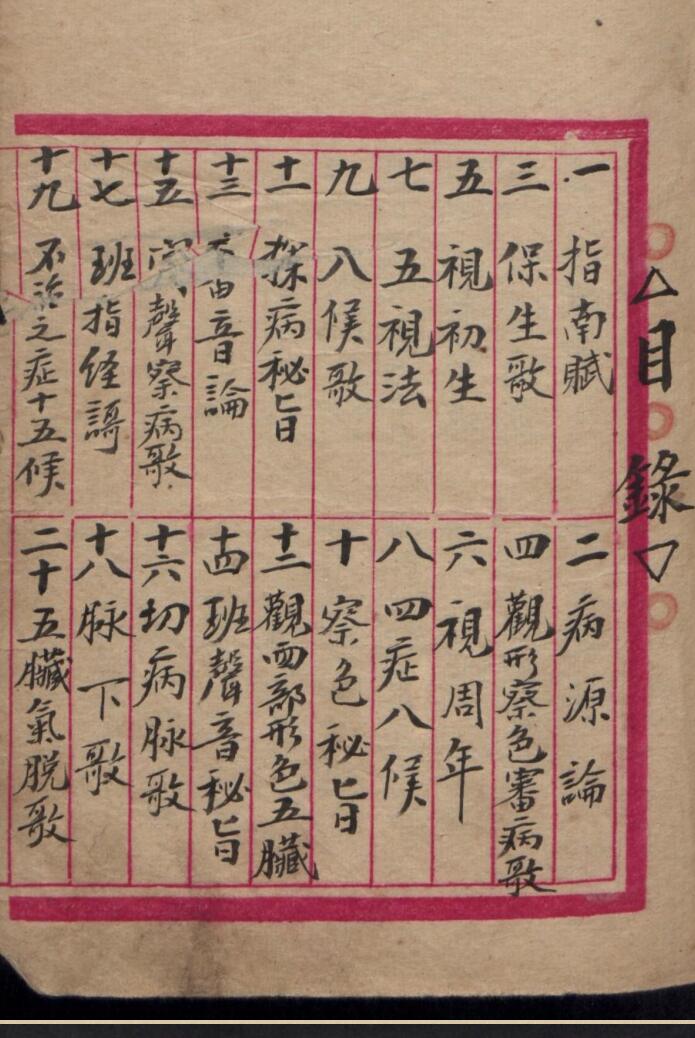 △目錄▽
一 指南賦
二 病源論
三 保生歌
四 觀形察色審病歌
五 視初生
六 視周年
七 五視法
八 四症八候
九 八候歌
十 察色秘旨
十一 探病秘旨
十二 觀面部形色五臟
十三 音論
十四 班聲音秘旨
十五 聲察病歌
十六 切病脉歌
十七 班指経謌
十八 脉下歌
十九 不治之症十五候
二十 五臟氣脱歌